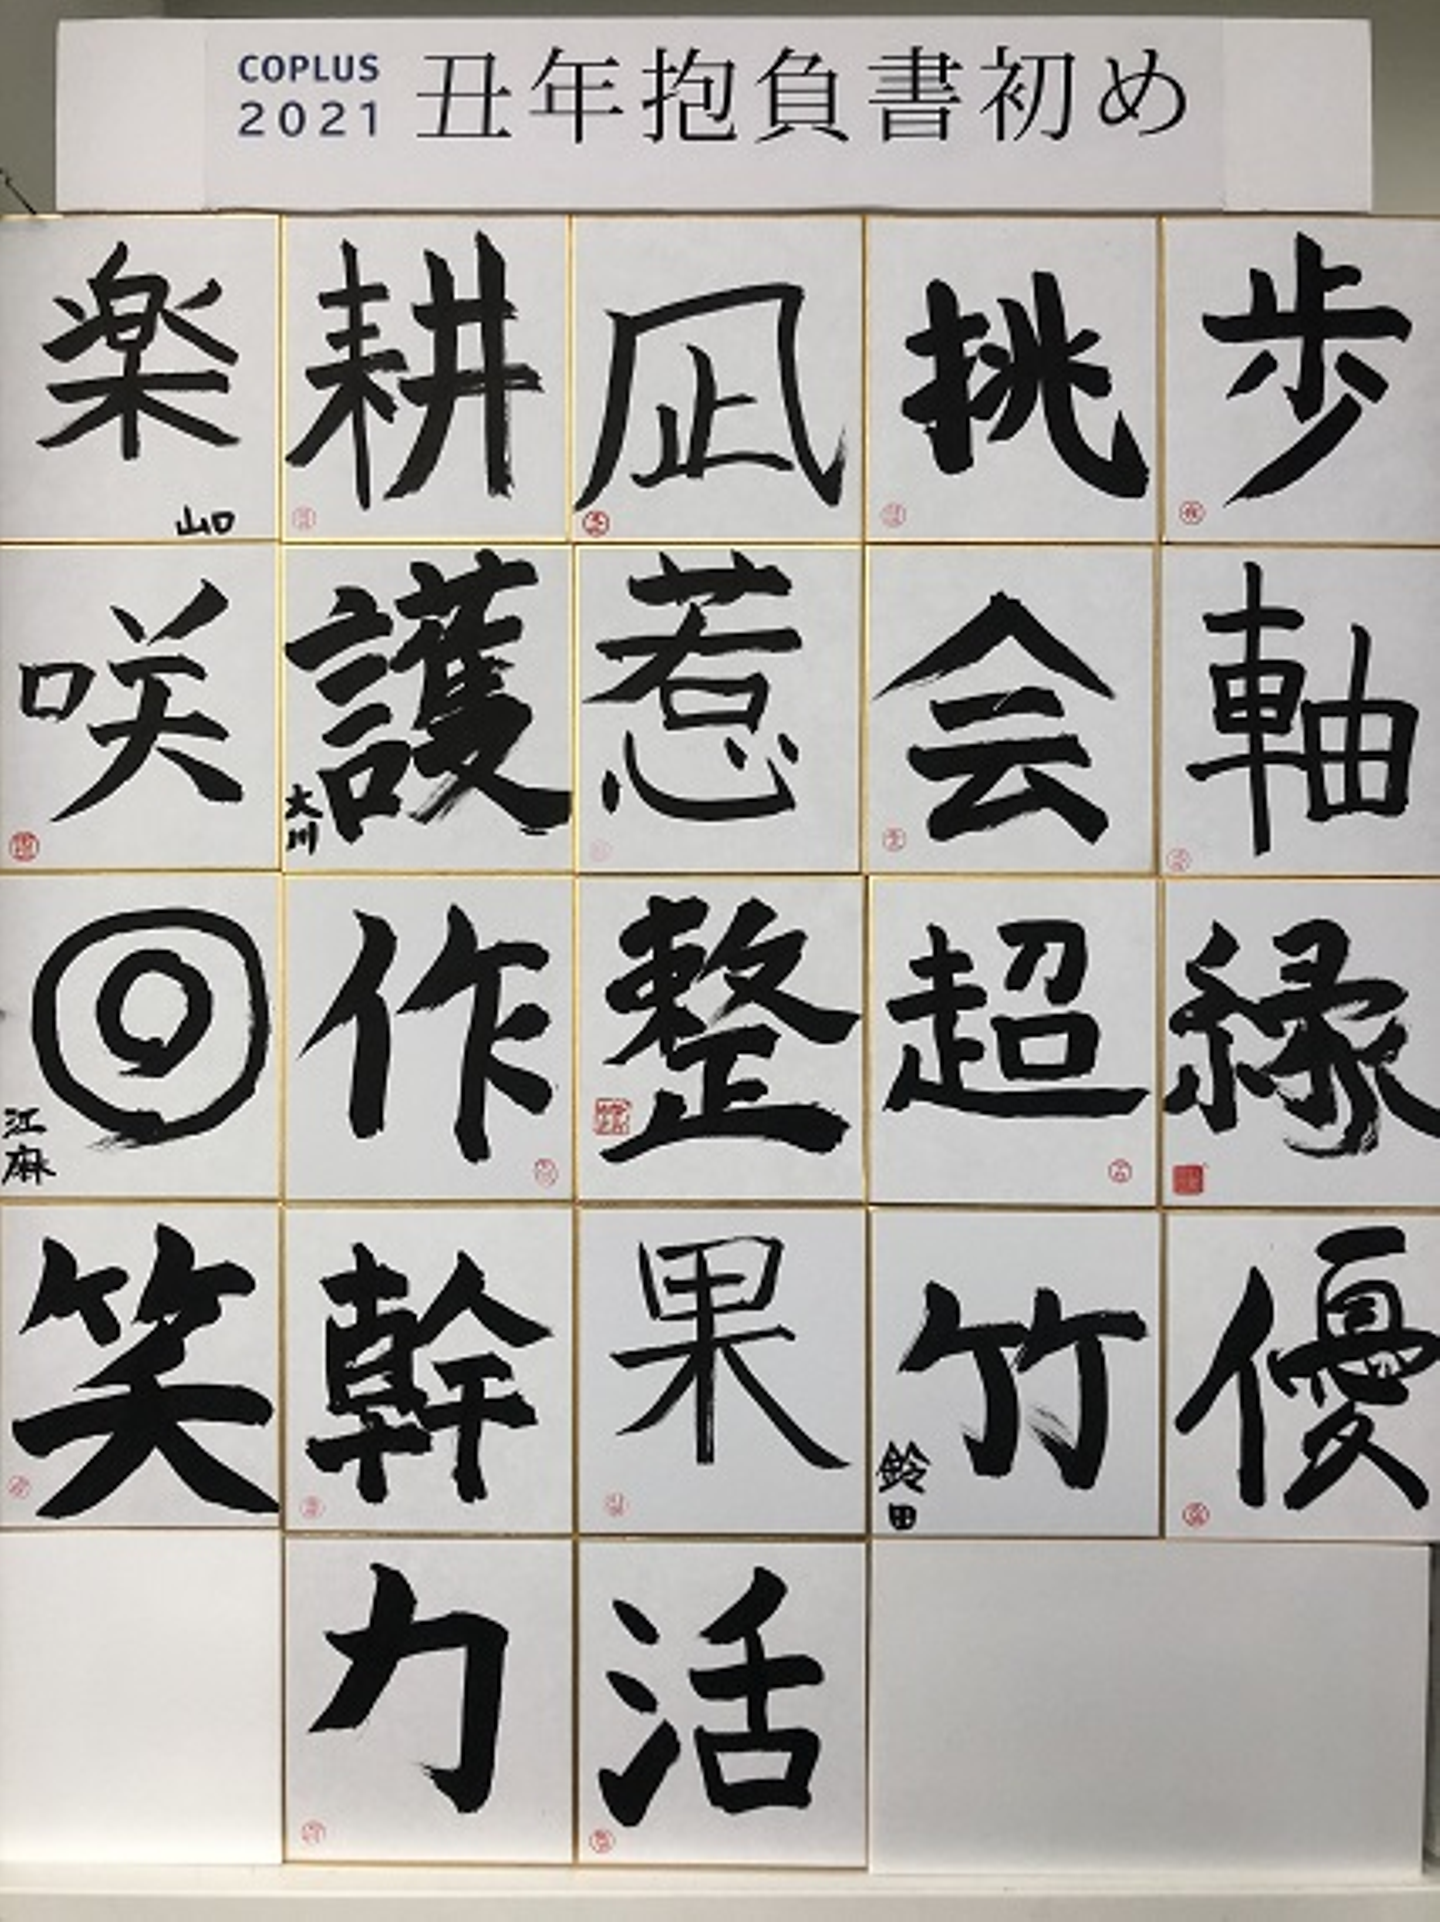 COPLUS
2021
丑年抱負書初め
楽 耕 凪 挑 歩
山口
咲 護 惹 会 軸
大川
◎ 作 整 超 縁
江麻
笑 幹 果 竹 優
鈴田
力 活